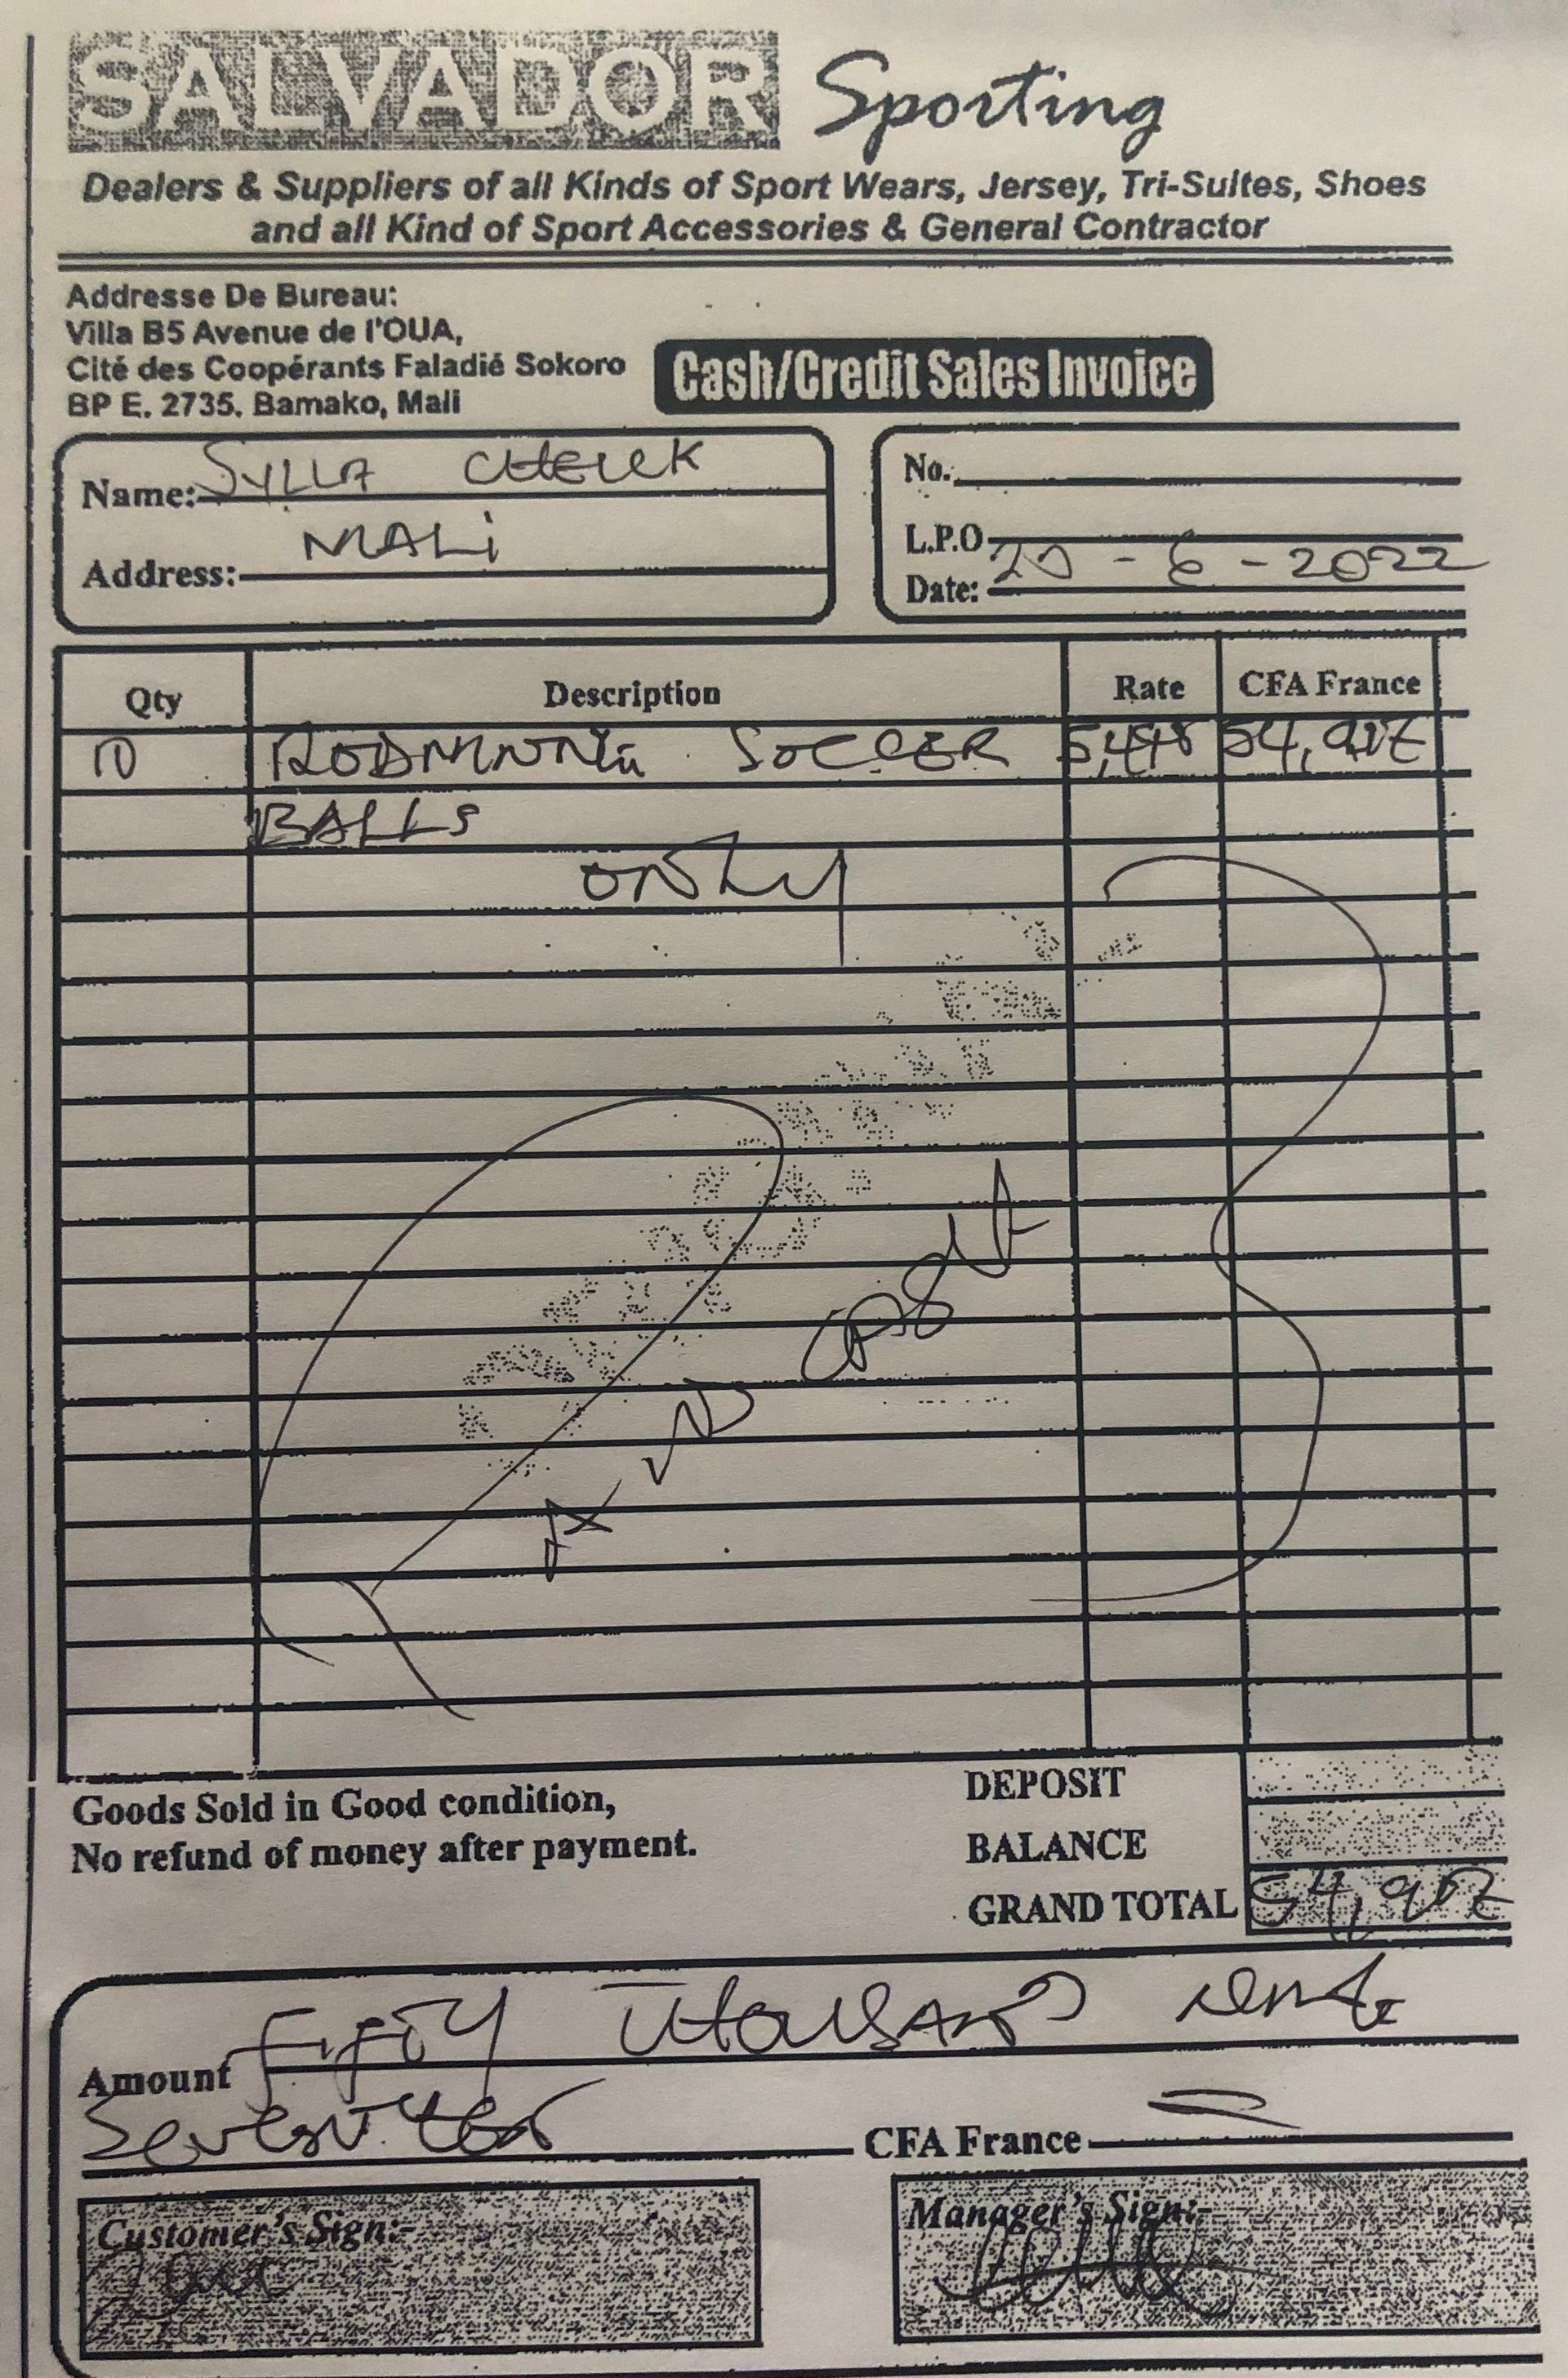 SALVADOR Sporting
Dealers & Suppliers of all Kinds of Sport Wears, Jersey, Tri-Suites, Shoes
and all Kind of Sport Accessories & General Contractor
Addresse De Bureau:
Villa B5 Avenue de l'OUA,
Cité des Coopérants Faladié Sokoro
BP E. 2735. Bamako, Mali
Cash/Credit Sales Invoice
Name: SYLLA CHEICK
Address: MALi
No.
L.P.O
Date: 20-6-2022
Qty Description Rate CFA France
10 SOCCER
BALLS
only
Goods Sold in Good condition,
No refund of money after payment.
DEPOSIT
BALANCE
GRAND TOTAL 54,907
Amount Fifty Thousand
CFA France
Customer's Sign:-
Manager's Sign:-